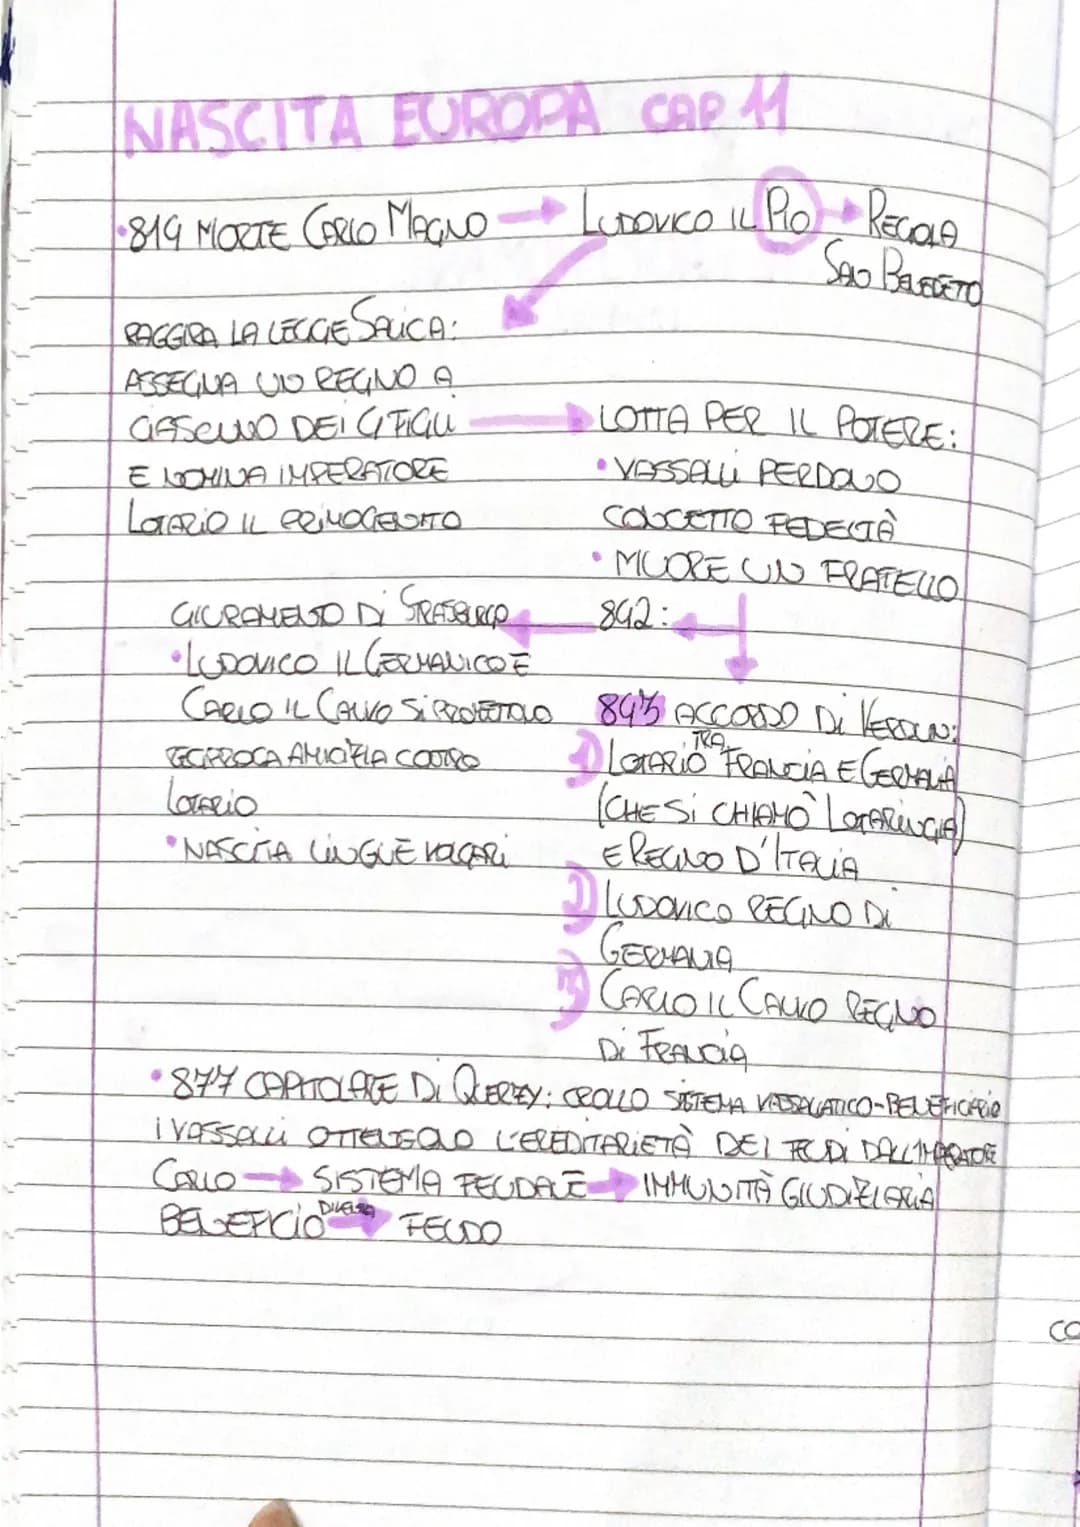 NASCITA EUROPA CAP 11
•814 MORTE CARLO MAGNO → LUDOVICO IL PIO → REGOLA
SAN BENEDETO
RAGGIRA LA LEGGE SALICA:
ASSEGNA UN REGNO A
CIASCUNO DEI 4 FIGLI → LOTTA PER IL POTERE:
E NOMINA IMPERATORE
LOTARIO IL PRIMOGENITO
• VASSALLI PERDONO
CONCETTO FEDELTÀ
• MUORE UN FRATELLO
842:
GIURAMENTO DI STRASBURGO
•LUDOVICO IL GERMANICO E
CARLO IL CALVO SI PROMETTONO
RECIPROCA AMICIZIA CONTRO
LOTARIO
•NASCITA LINGUE VOLGARI
843 ACCORDO DI VERDUN:
1) LOTARIO TRA FRANCIA E GERMANIA
(CHE SI CHIAMÒ LOTARINGIA)
E REGNO D'ITALIA
2) LUDOVICO REGNO DI
GERMANIA
3) CARLO IL CALVO REGNO
DI FRANCIA
•877 CAPITOLARE DI QUERZY: CROLLO SISTEMA VASSALATICO-BENEFICIARIO
I VASSALLI OTTENGONO L'EREDITARIETÀ DEI FEUDI DALL'IMPERATORE
CARLO → SISTEMA FEUDALE → IMMUNITÀ GIUDIZIARIA
BENEFICIO DIVENTA → FEUDO
CO